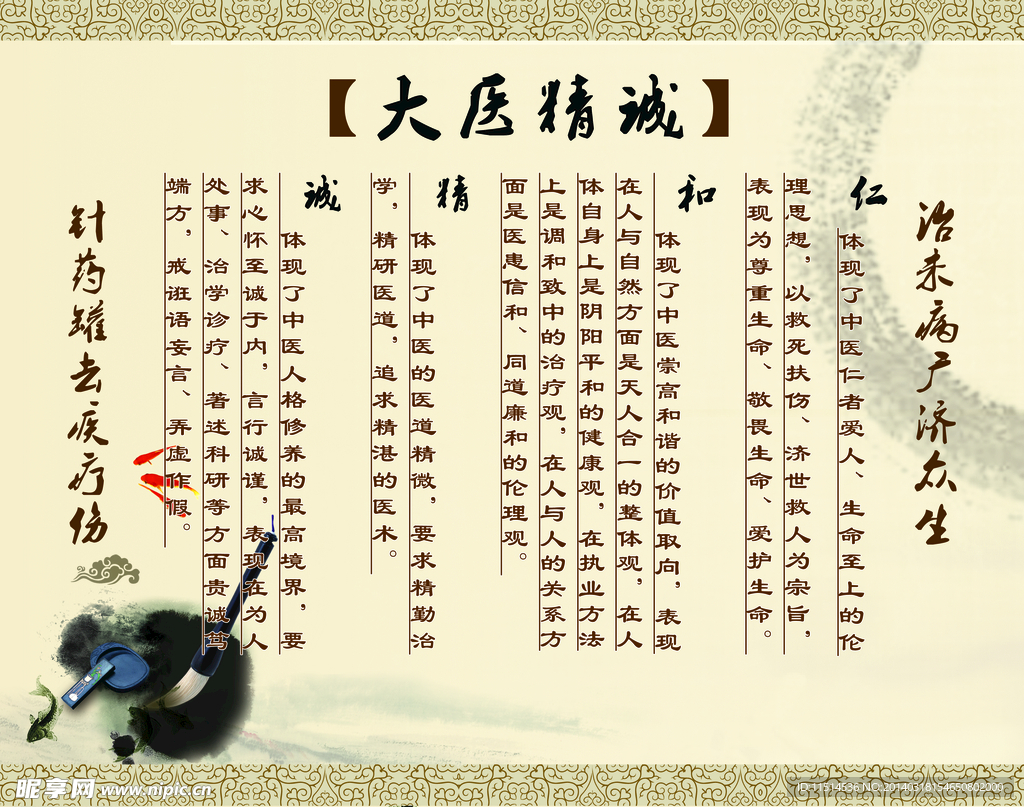 【大医精诚】
治未病广济众生
仁
体现了中医仁者爱人、生命至上的伦
理思想，以救死扶伤、济世救人为宗旨，
表现为尊重生命、敬畏生命、爱护生命。
和
体现了中医崇高和谐的价值取向，表现
在人与自然方面是天人合一的整体观，在人
体自身上是阴阳平和的健康观，在执业方法
上是调和致中的治疗观，在人与人的关系方
面是医患信和、同道廉和的伦理观。
精
体现了中医的医道精微，要求精勤治
学，精研医道，追求精湛的医术。
诚
体现了中医人格修养的最高境界，要
求心怀至诚于内，言行诚谨，表现在为人
处事、治学诊疗、著述科研等方面贵诚笃
端方，戒诳语妄言、弄虚作假。
针药罐去疾疗伤
昵享网 www.nipic.cn
ID:11514536 NO:20140318154650802000